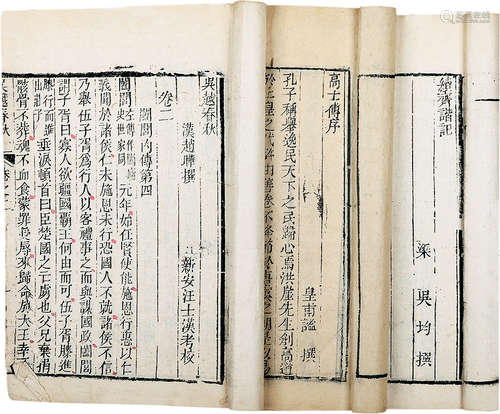 續齊諧記
梁 吳均 撰
高士傳序
皇甫謐 撰
孔子稱舉逸民天下之民歸心焉洪崖先生創高道
吳越春秋
漢趙曄撰
新安汪士漢考校
卷二
闔閭內傳第四
闔閭元年始任賢使能施恩行惠以仁
義聞於諸侯仁未施恩未行恐國人不就諸侯不信
乃舉伍子胥為行人以客禮事之而與謀國政闔閭
謂子胥曰寡人欲彊國霸王何由而可伍子胥膝進
垂淚頓首曰臣楚國之亡虜也父兄棄捐
骸骨不葬魂不血食蒙罪受辱來歸命於大王幸不
吳越春秋